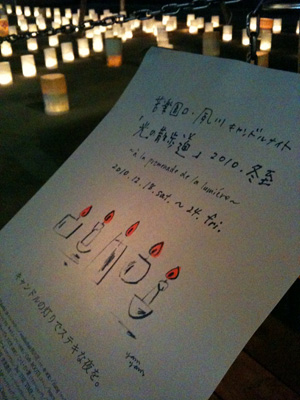 苦楽園口・夙川 キャンドルナイト
「光の散歩道」2010.冬至
~à la promenade de la lumière~
2010.12.18.sat.~24.fri.
キャンドルの灯りでステキな夜を。